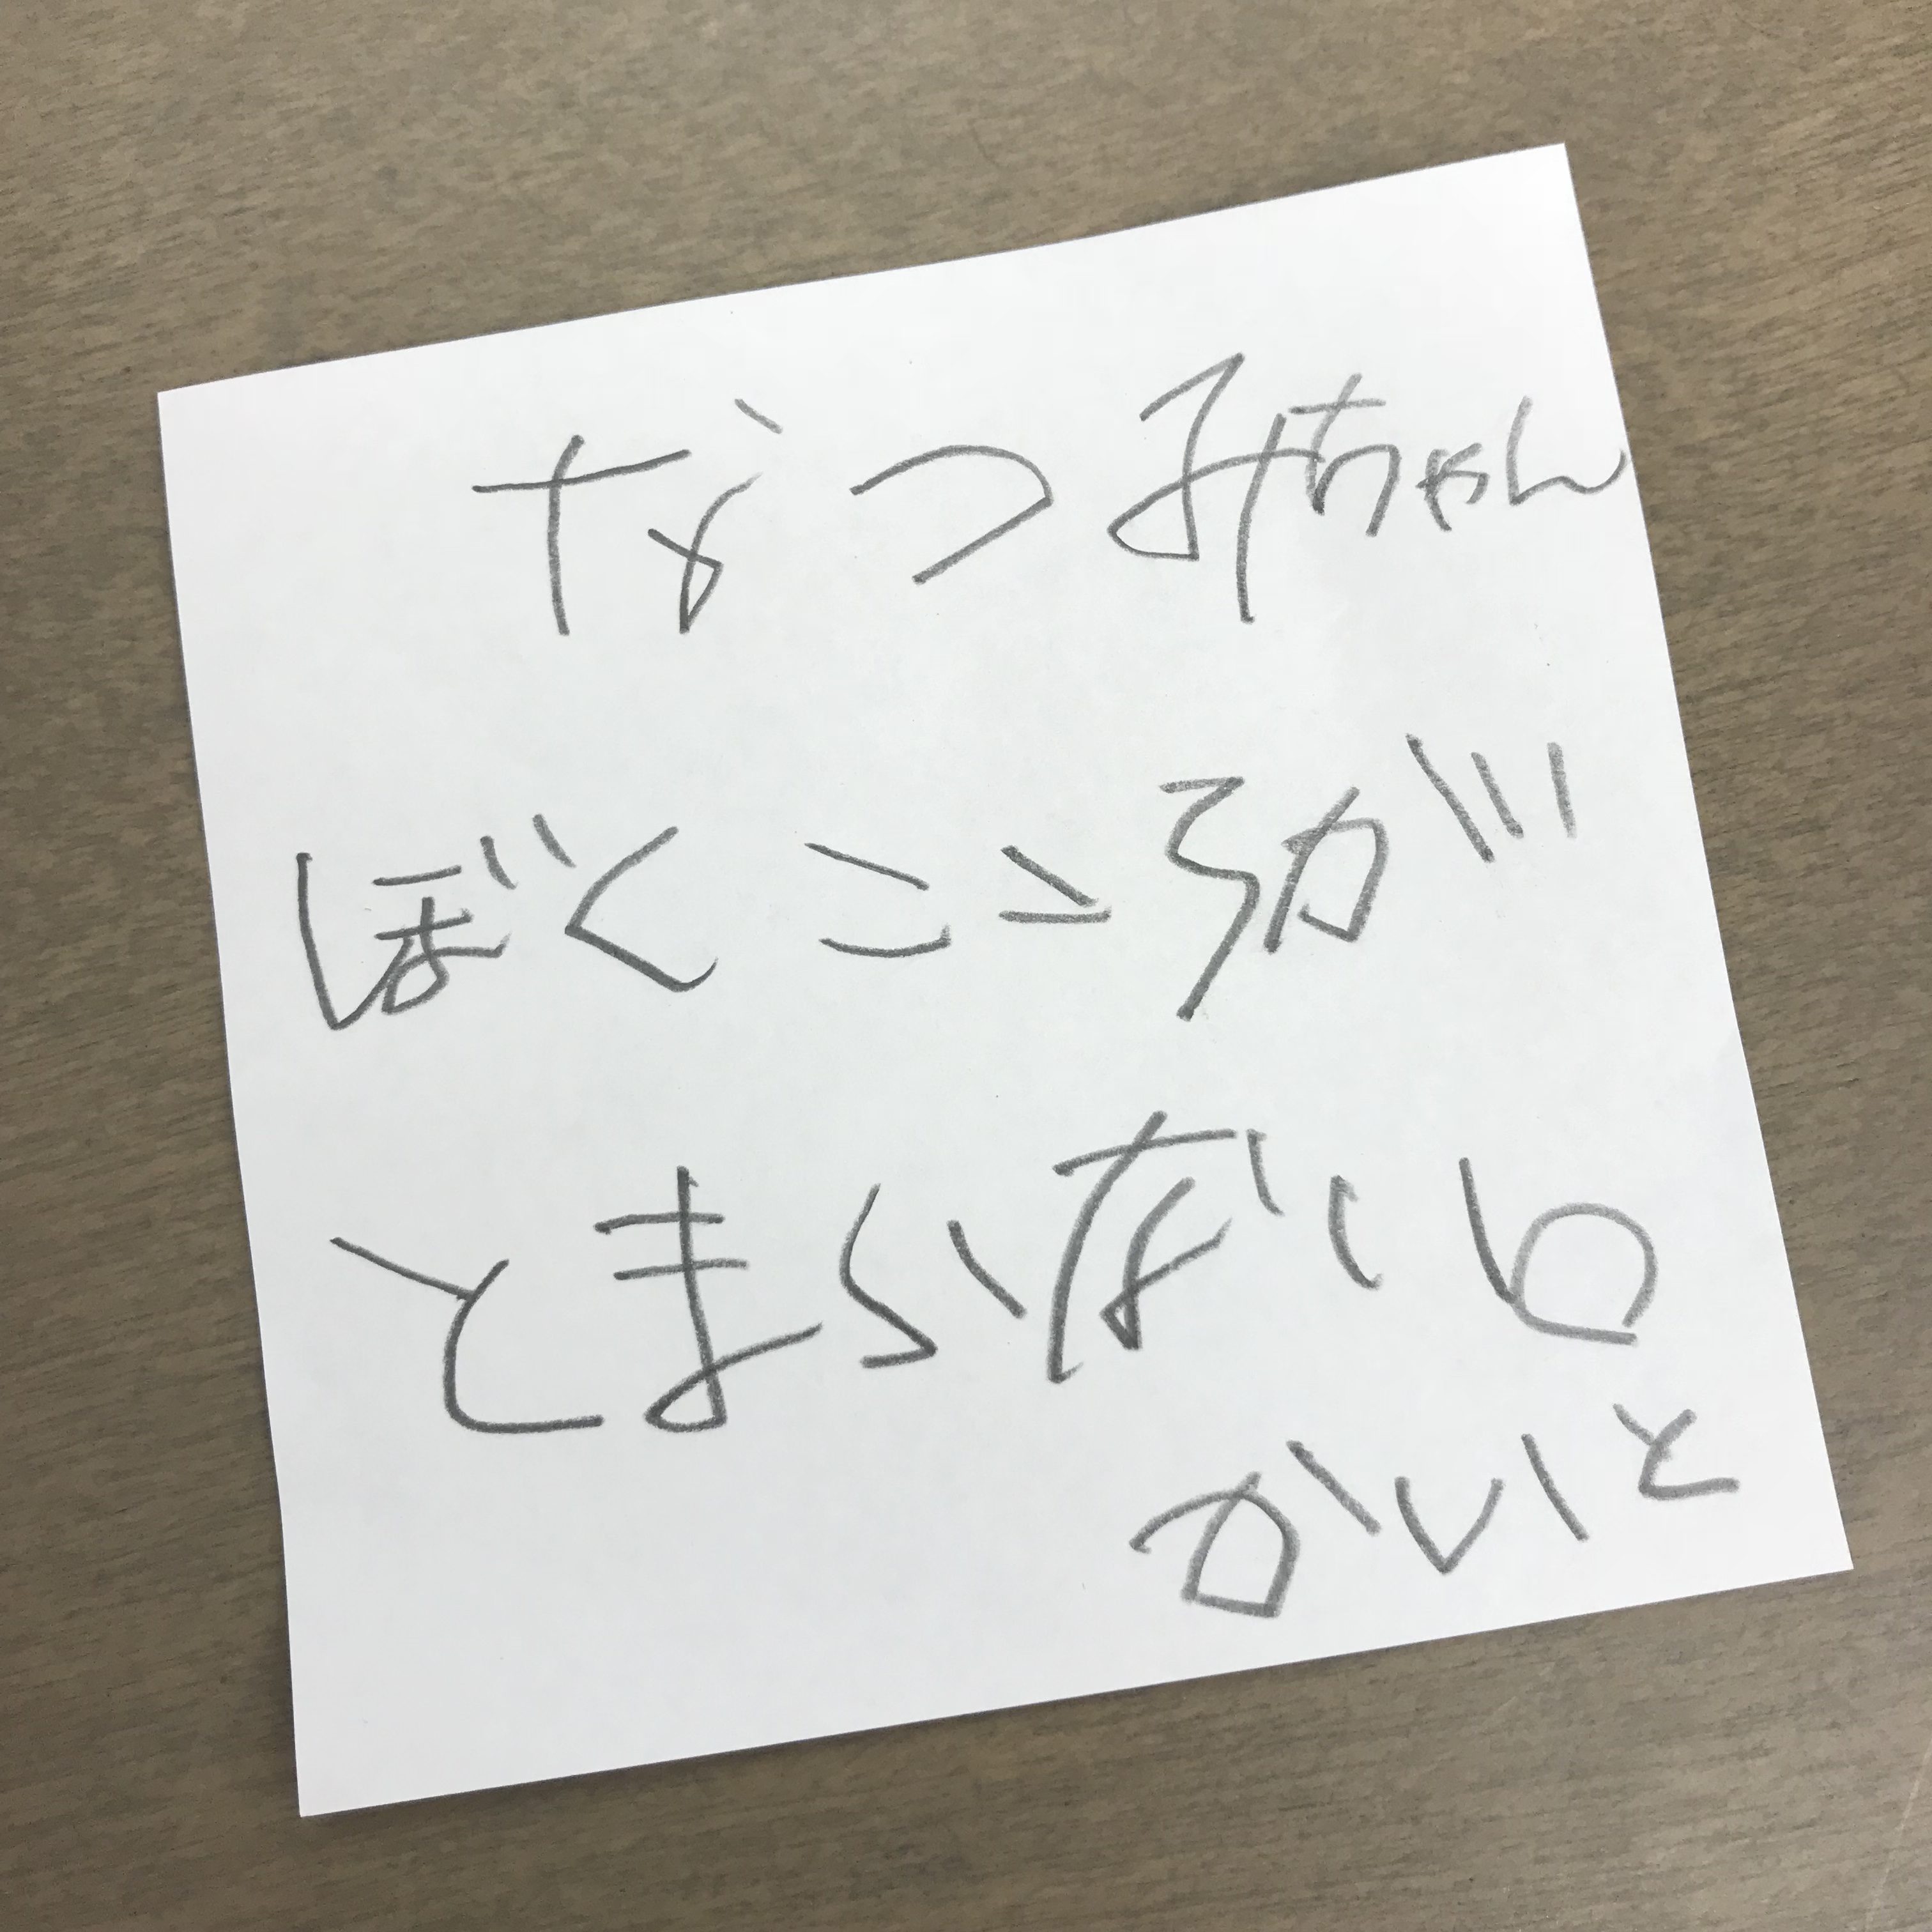 なつみちゃん
ぼくこころが
とまらないの
かいと